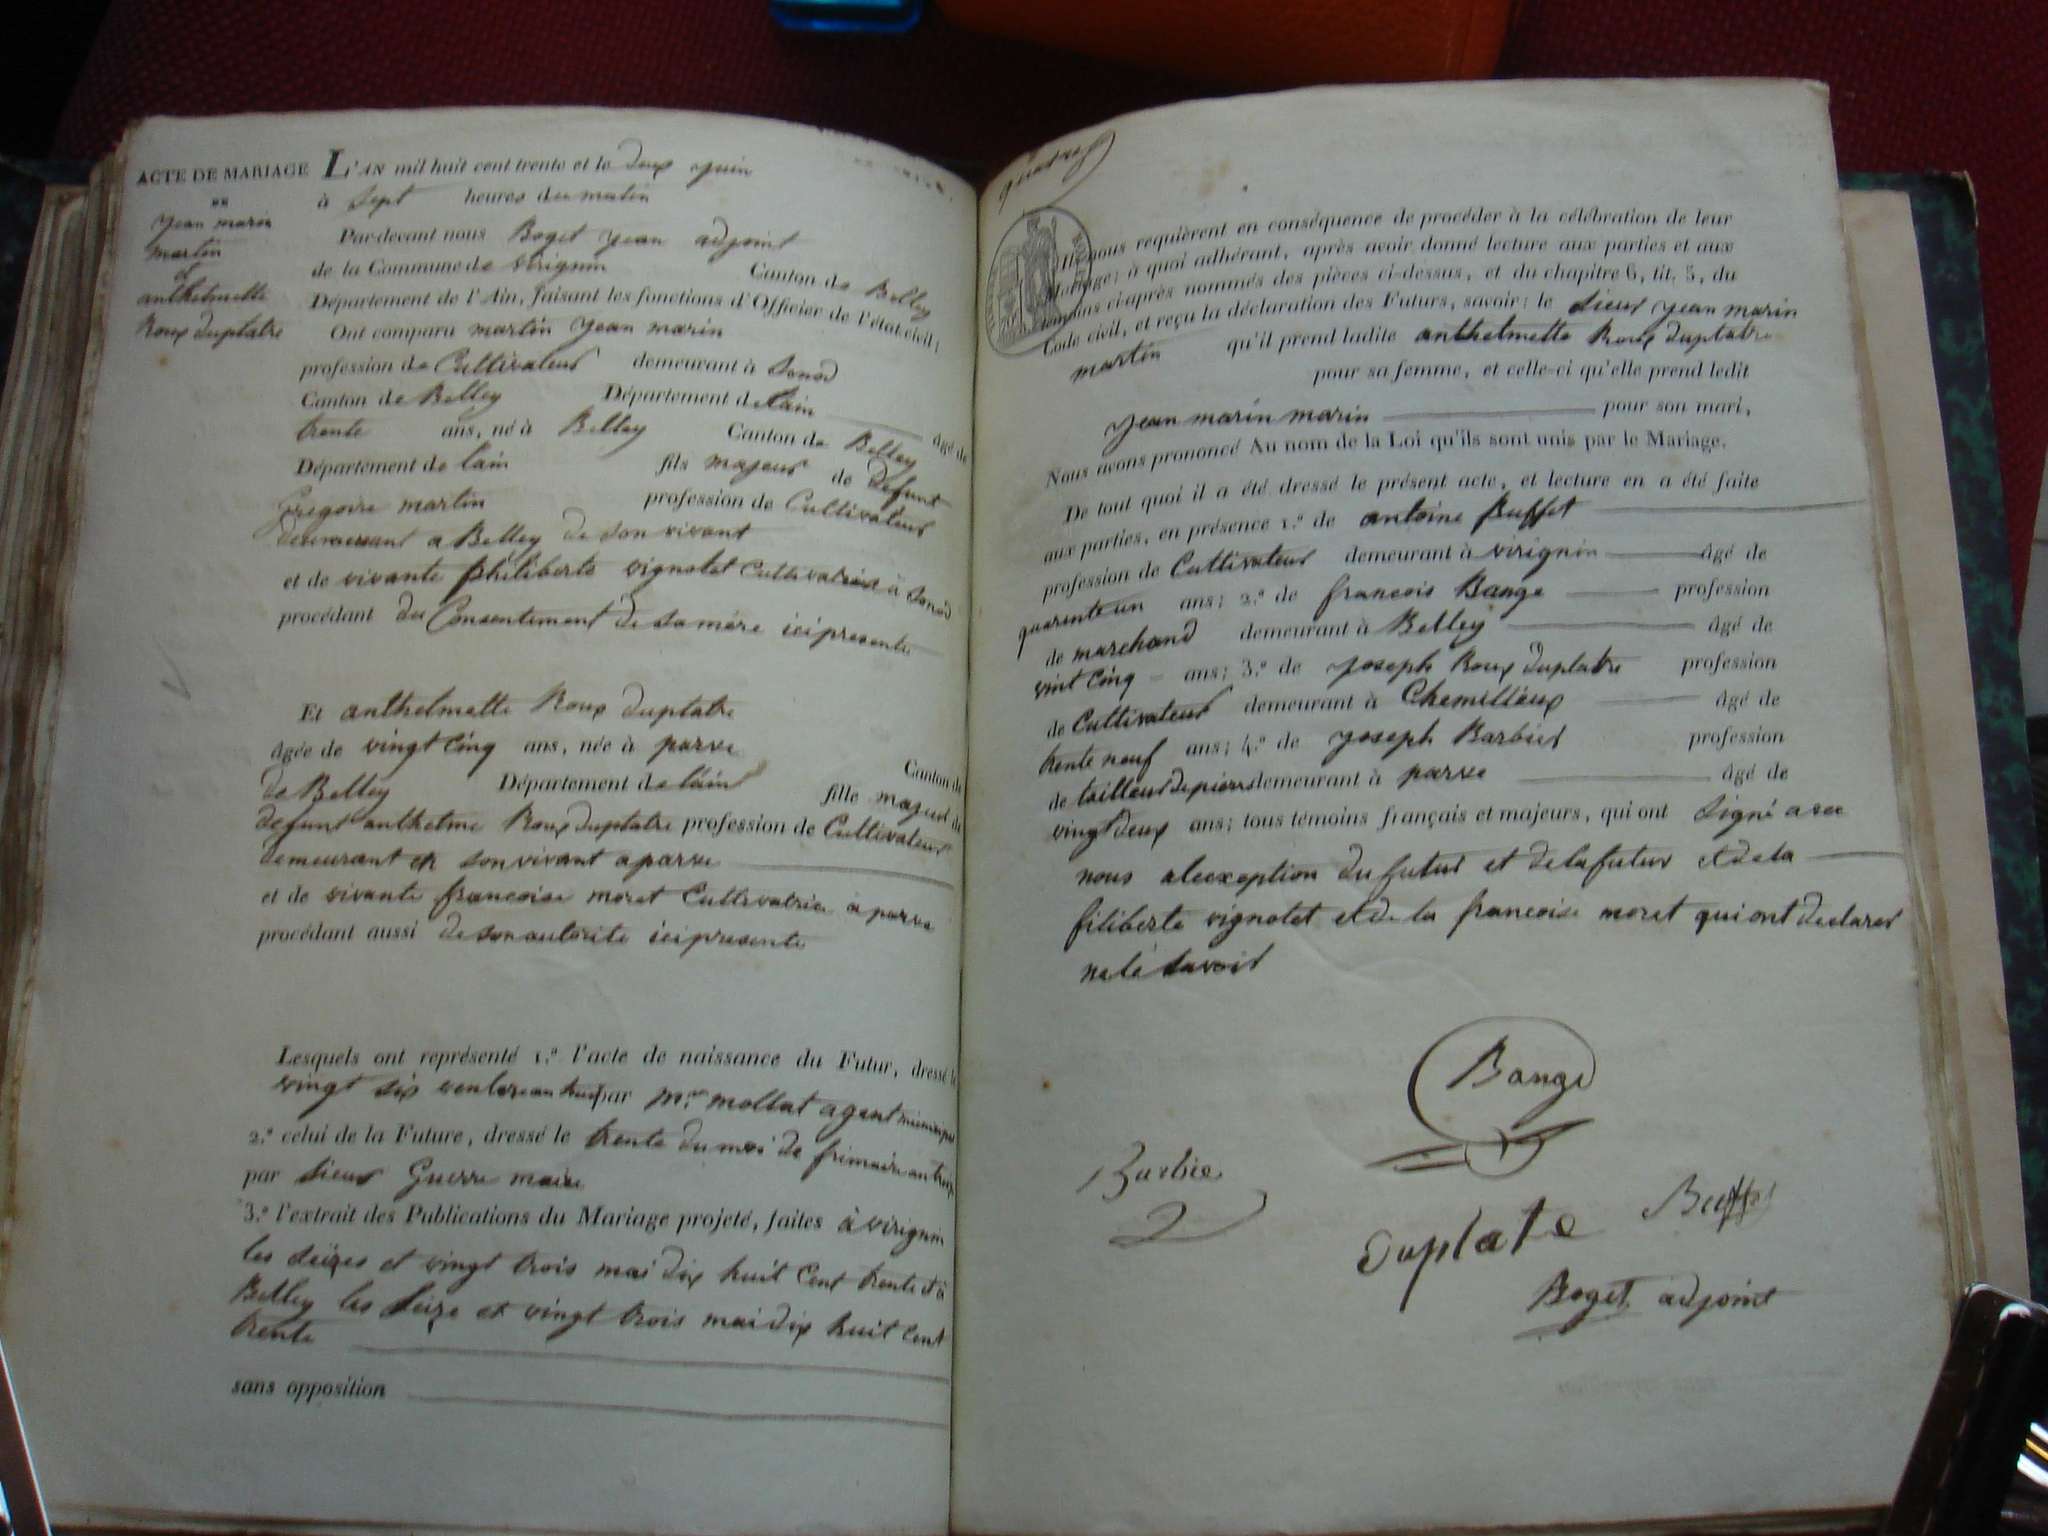 ACTE DE MARIAGE
DE
jean marin
martin
et
anthelmette
Roux duplatre
L'AN mil huit cent trente et le deux juin
à sept heures du matin
Par-devant nous Boget jean adjoint
de la Commune de virignin Canton de Belley
Département de l'Ain, faisant les fonctions d'Officier de l'état civil;
Ont comparu martin jean marin
profession de Cultivateur demeurant à Sonod
Canton de Belley Département de lain âgé de
trente ans, né à Belley Canton de Belley
Département de lain fils majeur de defunt
Gregoire martin profession de Cultivateur
demeurant a Belley de son vivant
et de vivante philiberte vignolet Cultivatrice à Sonod
procédant du Consentement de sa mère ici presente
Et anthelmette Roux duplatre
âgée de vingt cinq ans, née à parve Canton de
de Belley Département de lain fille majeur de
defunt anthelme Roux duplatre profession de Cultivateur
demeurant en son vivant a parve
et de vivante francoise moret Cultivatrice a parve
procédant aussi de son autorité ici presente
Lesquels ont représenté 1.º l'acte de naissance du Futur, dressé le
vingt six par Mr mollat agent municipal
2.º celui de la Future, dressé le trente du moi de frimaire an treize
par sieur Guerre maire
3.º l'extrait des Publications du Mariage projeté, faites à virignin
les seizes et vingt trois mai dix huit Cent trente et à
Belley les seize et vingt trois mai dix huit Cent
trente
sans opposition
quatre
Ils nous requièrent en conséquence de procéder à la célébration de leur
Mariage; à quoi adhérant, après avoir donné lecture aux parties et aux
témoins ci-après nommés des pièces ci-dessus, et du chapitre 6, tit. 5, du
Code civil, et reçu la déclaration des Futurs, savoir: le sieur jean marin
martin qu'il prend ladite anthelmette Roux duplatre
pour sa femme, et celle-ci qu'elle prend ledit
jean marin marin pour son mari,
Nous avons prononcé Au nom de la Loi qu'ils sont unis par le Mariage.
De tout quoi il a été dressé le présent acte, et lecture en a été faite
aux parties, en présence 1.º de antoine Buffet
profession de Cultivateur demeurant à virignin âgé de
quarente un ans; 2.º de francois Bange profession
de marchand demeurant à Belley âgé de
vint Cinq ans; 3.º de joseph Roux duplatre profession
de Cultivateur demeurant à Chemillieux âgé de
trente neuf ans; 4.º de joseph Barbier profession
de tailleur de pierre demeurant à parve âgé de
vingt deux ans; tous témoins français et majeurs, qui ont signé avec
nous alexception du futur et de la futur et de la
filiberte vignolet et de la francoise moret qui ont declarer
ne lé savoir
Bange
Barbier
Duplate
Buffet
Boget adjoint